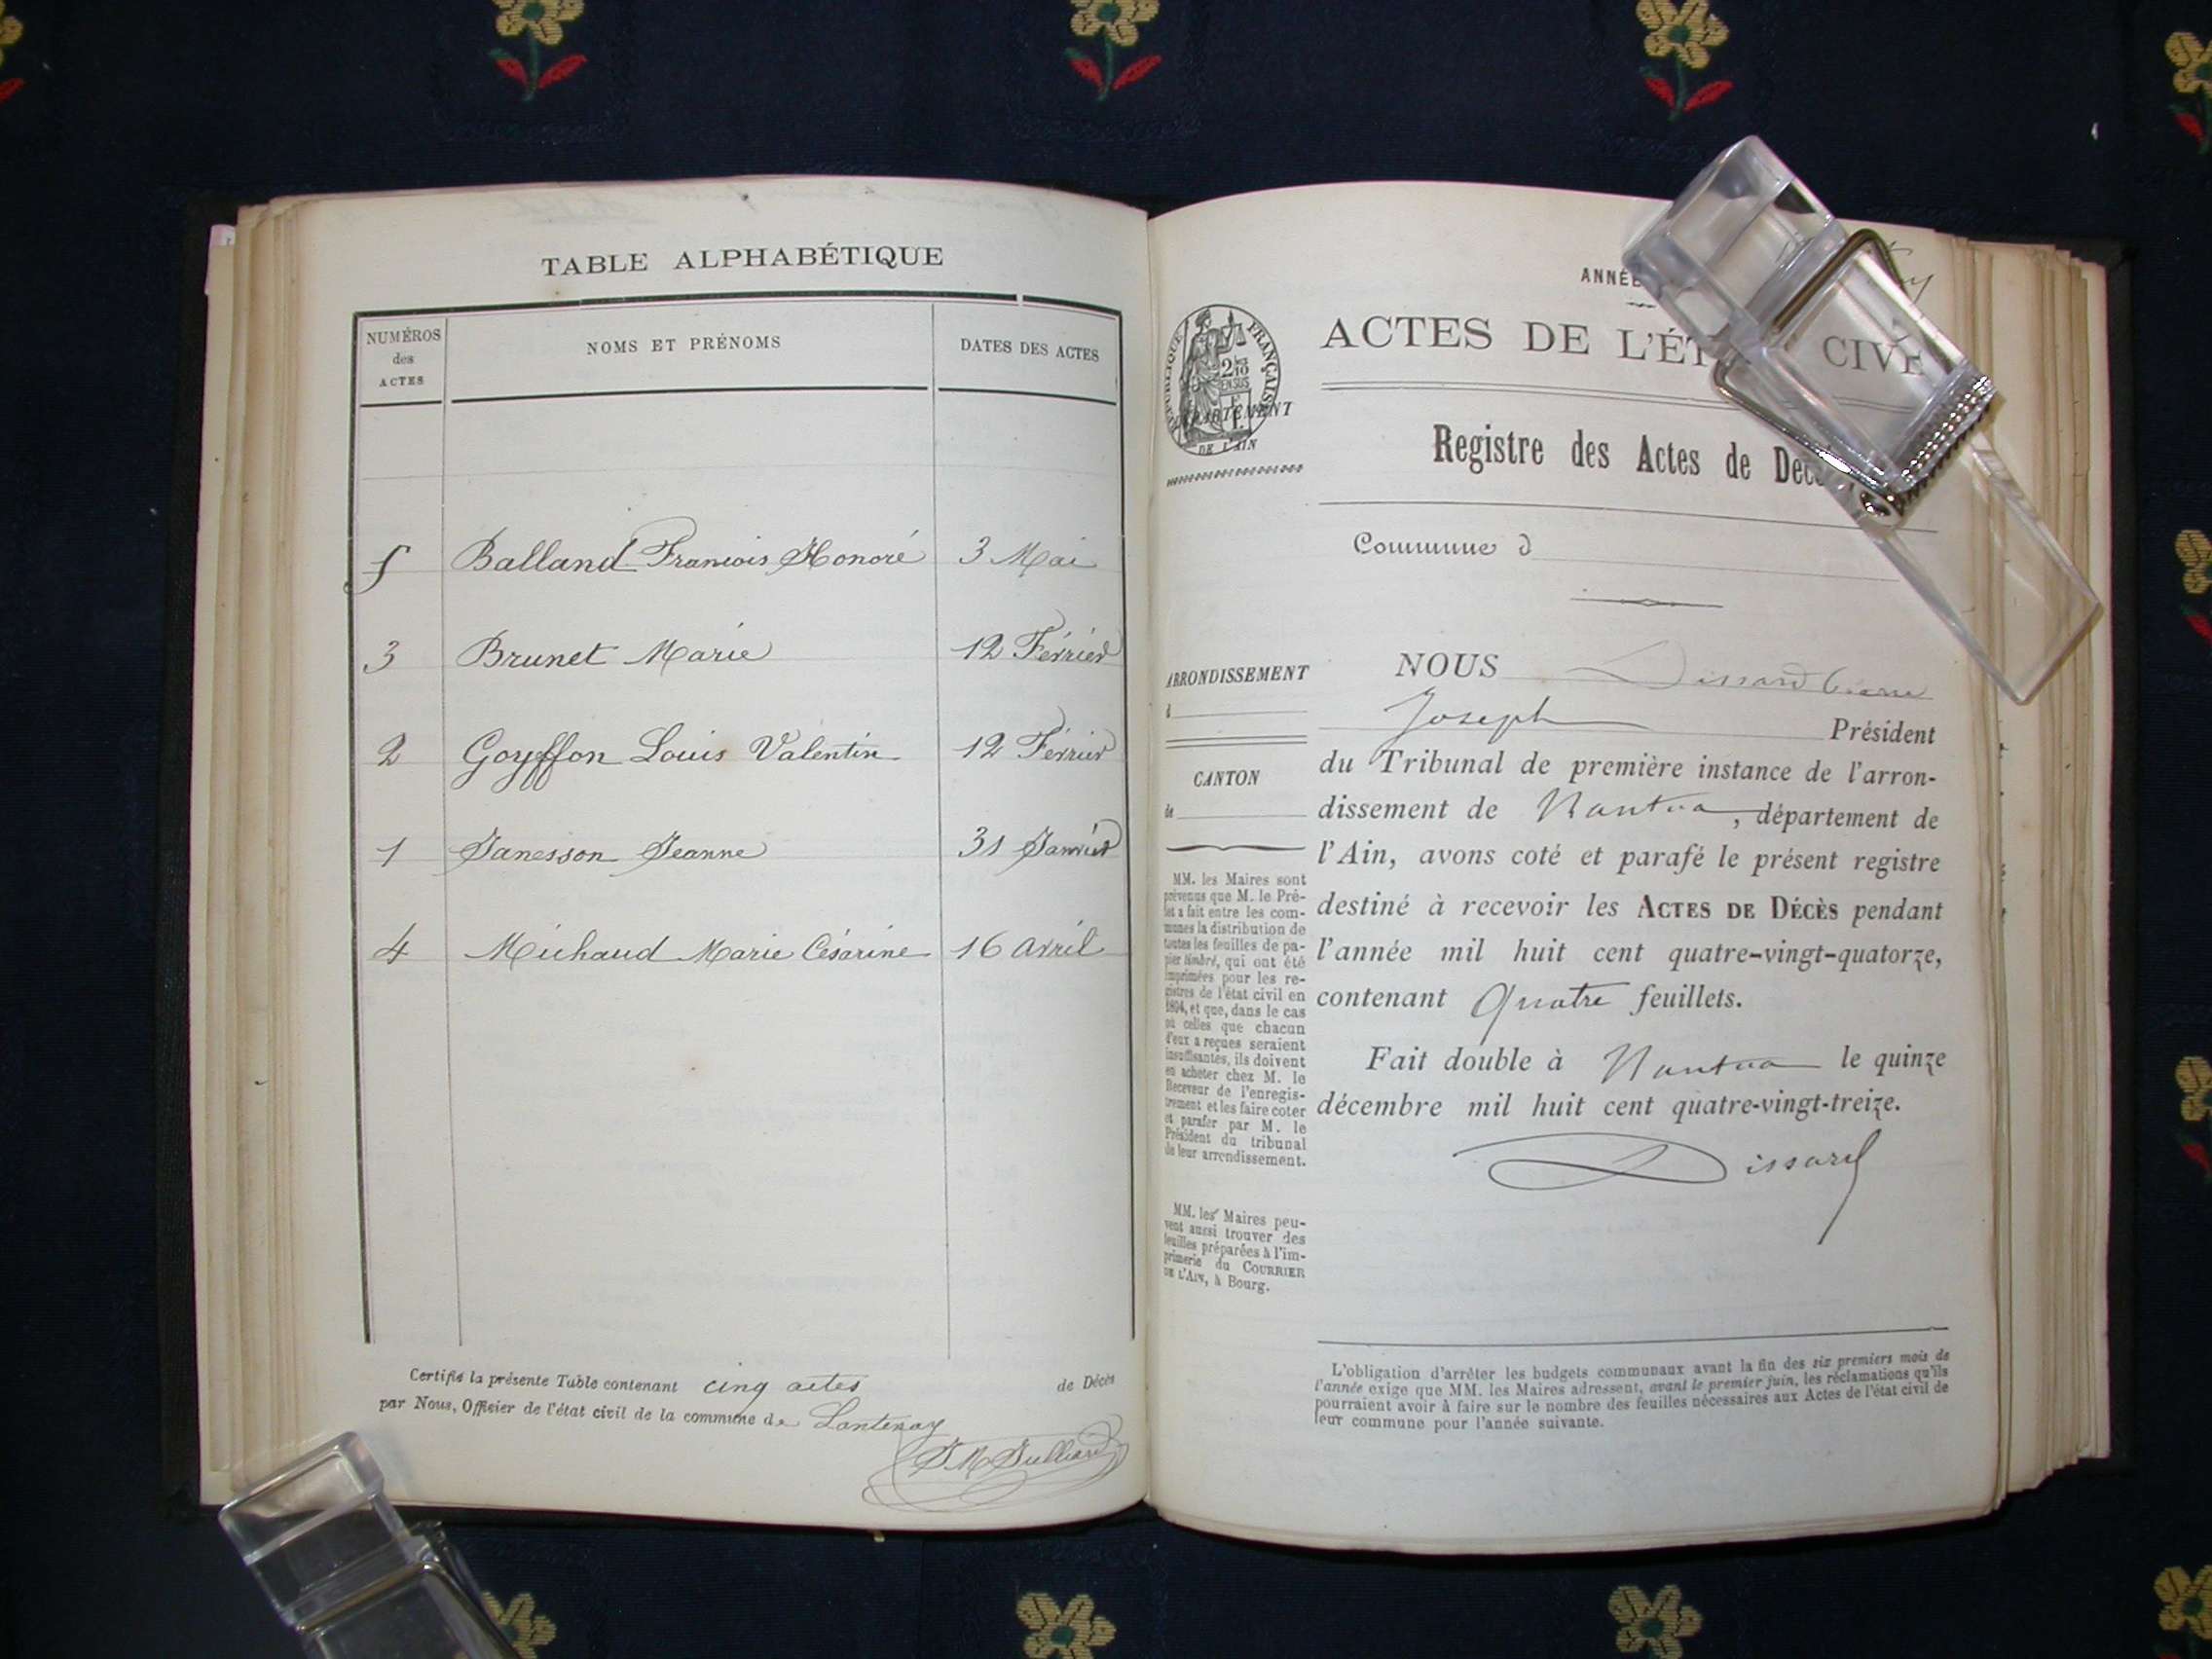 TABLE ALPHABÉTIQUE
NUMÉROS des ACTES
NOMS ET PRÉNOMS
DATES DES ACTES
5 Balland François Honoré 3 Mai
3 Brunet Marie 12 Février
2 Goyffon Louis Valentin 12 Février
1 Janesson Jeanne 31 Janvier
4 Michaud Marie Césarine 16 avril
Certifié la présente Table contenant cinq actes de Décès
par Nous, Officier de l'état civil de la commune de Lantenay
J. M. Julliard
ANNÉE
RÉPUBLIQUE FRANÇAISE
2/10 EN SUS
DÉPARTEMENT
DE L'AIN
ACTES DE L'ÉT CIVI
Registre des Actes de Décè
Commune d
ARRONDISSEMENT
d
CANTON
de
MM. les Maires sont
prévenus que M. le Pré-
fet a fait entre les com-
munes la distribution de
toutes les feuilles de pa-
pier timbré, qui ont été
imprimées pour les re-
gistres de l'état civil en
1894, et que, dans le cas
où celles que chacun
d'eux a reçues seraient
insuffisantes, ils doivent
en acheter chez M. le
Receveur de l'enregis-
trement et les faire coter
et parafer par M. le
Président du tribunal
de leur arrondissement.
MM. les Maires peu-
vent aussi trouver des
feuilles préparées à l'im-
primerie du COURRIER
DE L'AIN, à Bourg.
NOUS Dissard Pierre
Joseph Président
du Tribunal de première instance de l'arron-
dissement de Nantua, département de
l'Ain, avons coté et parafé le présent registre
destiné à recevoir les ACTES DE DÉCÈS pendant
l'année mil huit cent quatre-vingt-quatorze,
contenant Quatre feuillets.
Fait double à Nantua le quinze
décembre mil huit cent quatre-vingt-treize.
Dissard
L'obligation d'arrêter les budgets communaux avant la fin des six premiers mois de
l'année exige que MM. les Maires adressent, avant le premier juin, les réclamations qu'ils
pourraient avoir à faire sur le nombre des feuilles nécessaires aux Actes de l'état civil de
leur commune pour l'année suivante.